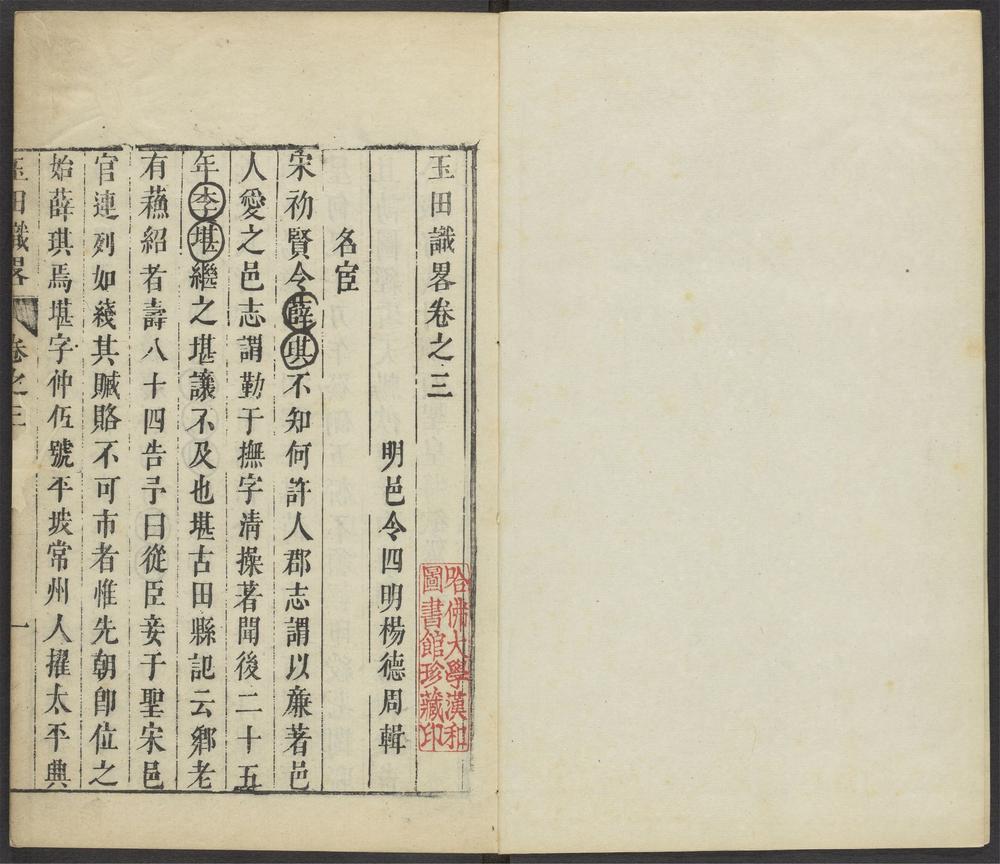 玉田識畧卷之三
明邑令四明楊德周輯
名宦
宋初賢令薛琪不知何許人郡志謂以廉著邑
人愛之邑志謂勤于撫字清操著聞後二十五
年李堪繼之堪讓不及也堪古田縣記云鄉老
有蘓紹者壽八十四告予曰從臣妾于聖宋邑
官連列如綫其贓賂不可市者惟先朝卽位之
始薛琪焉堪字仲伍號平坡常州人擢太平典
玉田識畧
卷之三
一
哈佛大學漢和
圖書館珍藏印